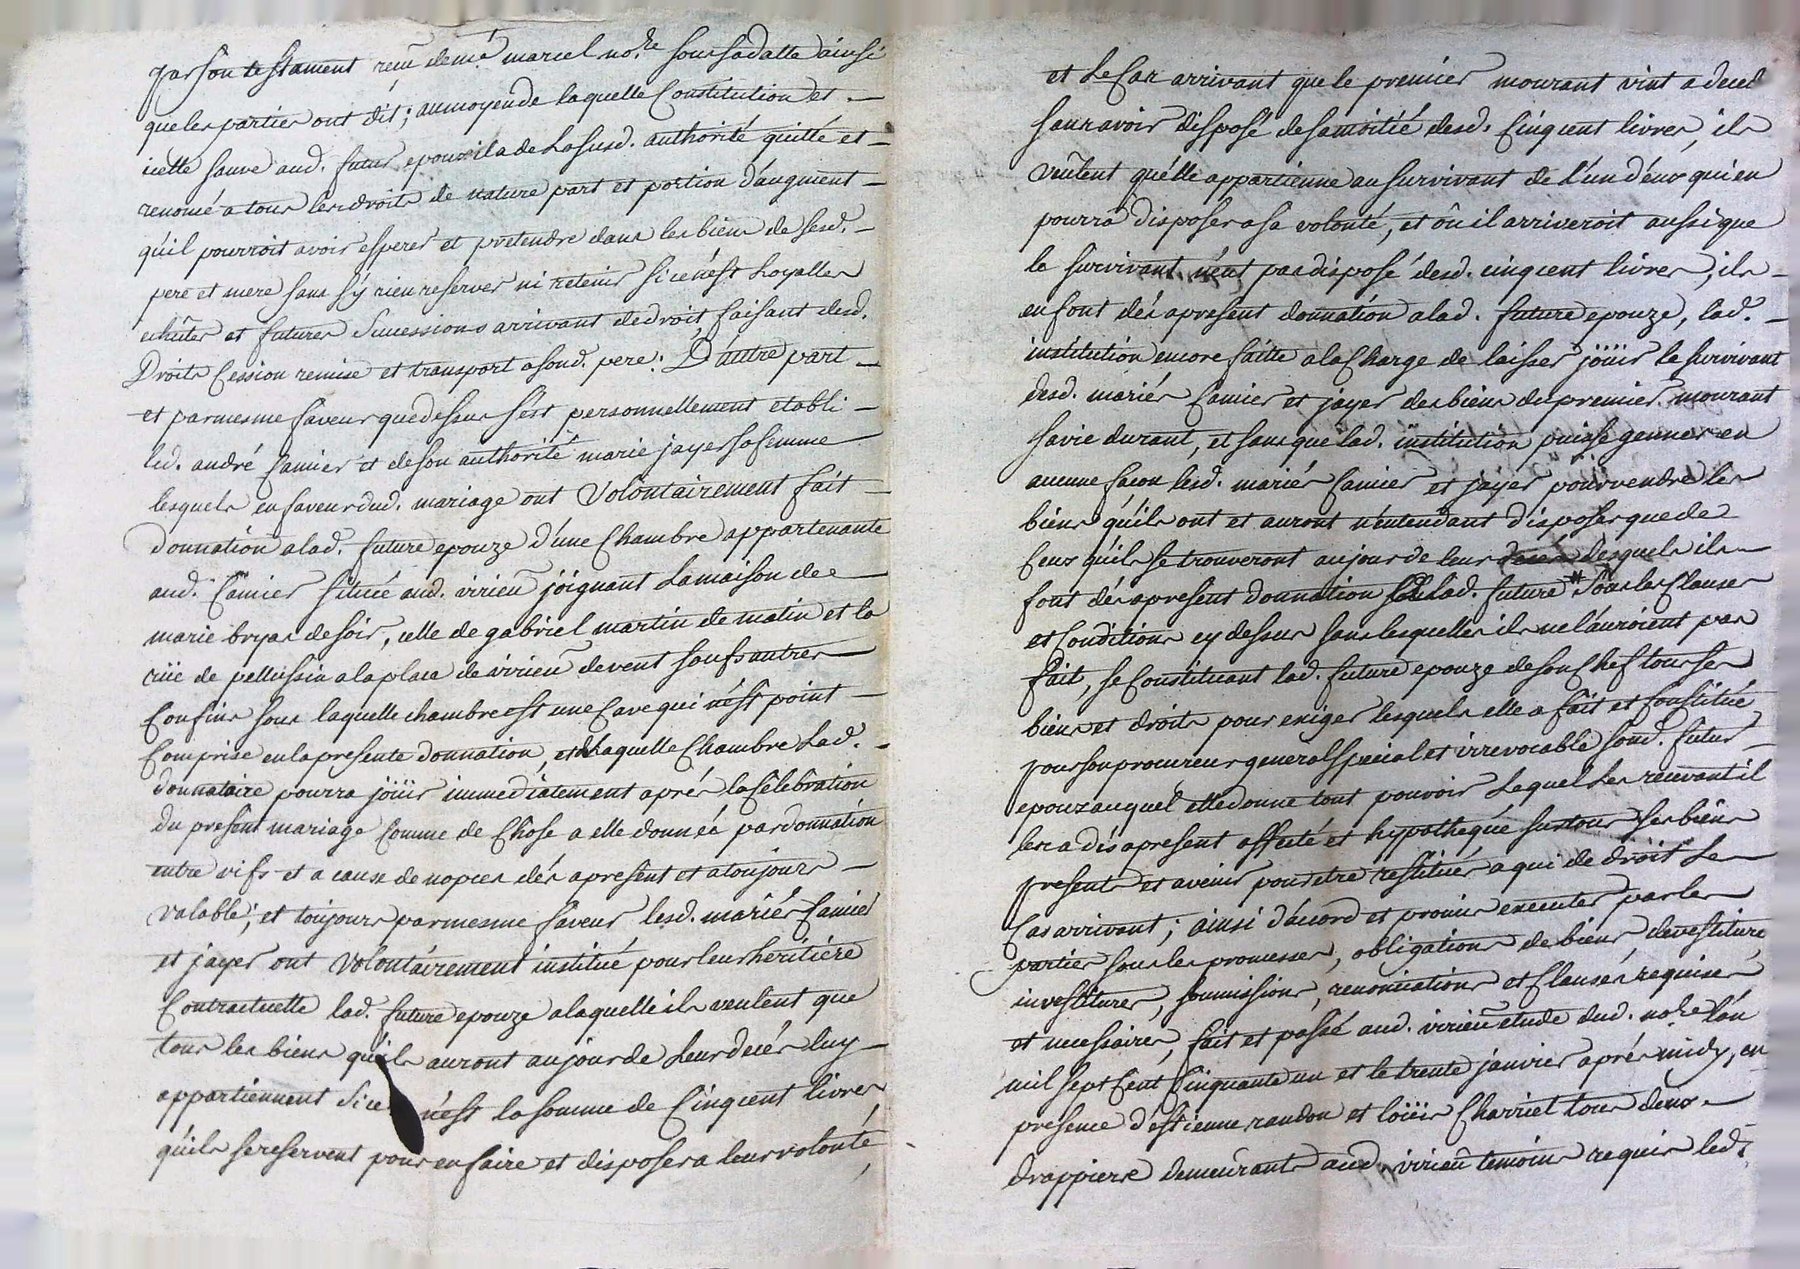 par son testament reçu de me marcel nore sous sa datte ainsi
que les parties ont dit; au moyen de laquelle Constitution et
icelle sauve aud. futur epoux il a de La susd. authorité quitté et
renoncé a tous les droits de nature part et portion d'augment
qu'il pourroit avoir esperer et pretendre dans les biens de sesd.
pere et mere sans s'y rien reserver ni retenir si ce n'est Loyalles
echûtes et futures Successions arrivant de droit faisant desd.
Droits Cession remise et transport a sond. pere: D'autre part
et par mesme faveur que dessus s'est personnellement etabli
led. andré Camier et de son authorité marie jayer sa femme
lesquels en faveur dud. mariage ont Volontairement fait
donnation a lad. future epouze d'une Chambre appartenante
aud. Camier située aud. virieu joignant La maison de
marie bryas de soir, celle de gabriel martin de matin et la
rüe de pellussin a la place de virieu de vent sauf s autres
Confins sous laquelle chambre est une Cave qui n'est point
Comprise en la presente donnation, et de laquelle Chambre Lad.
donnataire pourra joüir immediatement aprés la Célébration
du present mariage Comme de Chose a elle donnée par donnation
entre vifs et a cause de nopces dés a present et a toujours
valable; et toujours par mesme faveur lesd. mariés Camier
et jayer ont Volontairement institué pour leur héritiére
Contractuelle lad. future epouze a laquelle ils veulent que
tous les biens qu'ils auront au jour de Leur decés luy
appartiennent Si ce n'est la somme de Cinq cent livres
qu'ils se reservent pour en faire et disposer a leur volonté,
et Le Cas arrivant que le premier mourant vint a deced
sans avoir disposé de sa moitié desd. Cinq cent livres, ils
veulent qu'elle appartienne au Survivant de L'un d'eux qui en
pourra disposer a sa volonté, et où il arriveroit aussi que
le survivant n'eut pas disposé desd. cinq cent livres, ils
en font dés a present donnation a lad. future epouze, lad.
institution encore faitte a la Charge de laisser joüir le survivant
desd. mariés Camier et jayer des biens du premier mourant
sa vie durant, et sans que lad. institution puisse genner en
aucune facon lesd. mariés Camier et jayer pour vendre les
biens qu'ils ont et auront n'entendant disposer que de
Ceux qu'ils se trouveront au jour de leur decés desquels ils
font dés a present donnation a Lad. future # Sous les Clauses
et Conditions cy dessus sans lesquelles ils ne l'auroient pas
fait, se Constituant lad. future epouze de son Chef tous ses
biens et droits pour exiger lesquels elle a fait et Constitué
pour son procureur general special et irrevocable sond. futur
epoux auquel elle donne tout pouvoir Lequel Les recevant il
les a dés a present affecté et hypothequé sur tous ses biens
presents et avenir pour etre restitués a qui de droit Le
Cas arrivant; ainsi d'acord et promis executer par les
parties sous les promesses, obligations de biens, devestitures
investitures, soumissions, renonciations et Clauses requises
et necessaires, fait et passé aud. virieu etude dud. nore l'an
mil sept Cent Cinquante un et le trente janvier aprés midy, en
presence d'estienne randon et loüis Charriel tous deux
drappiers demeurants aud. virieu temoins requis led.